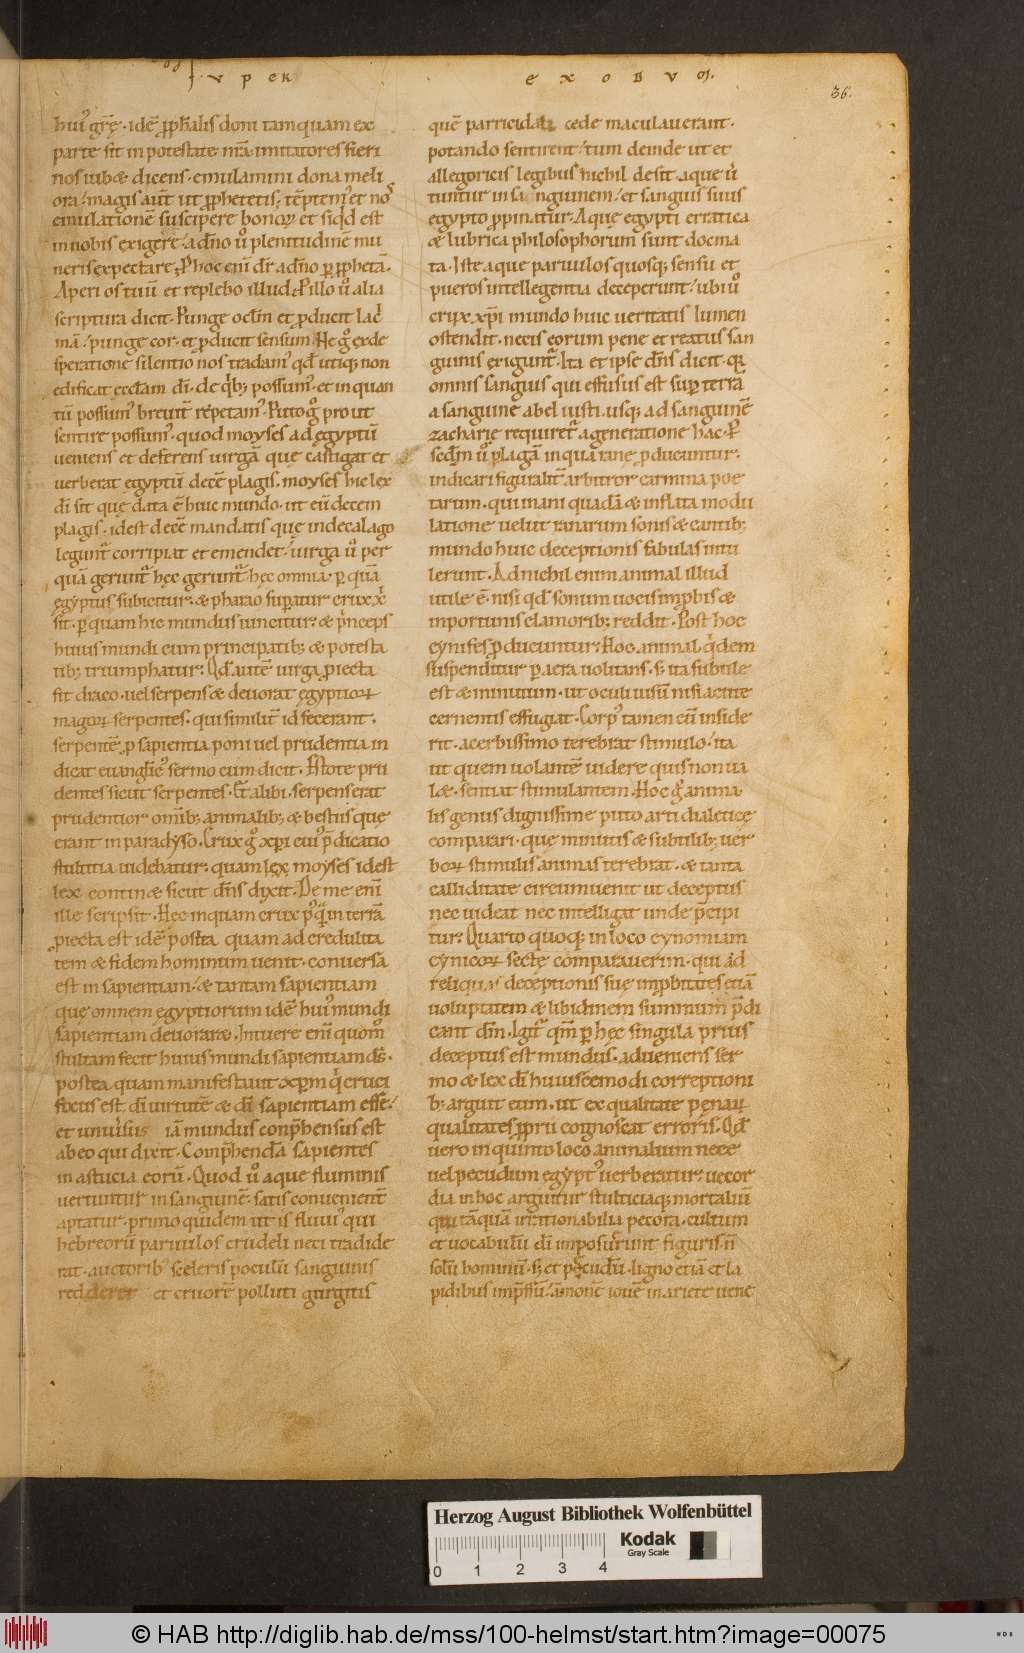 S V P E R E X O D V M.
36.
hui' grę. idē p̄phalis doni tamquam ex
parte sit in potestate nr̄a. imitatores fieri
nos iubet dicens. emulamini dona meli
ora. magis aūt ut p̄phetetis. tēptem' et nos
emulationē suscipere bonoꝝ et siqd est
in nobis exigere. a dn̄o ů plenitudinē mu
neris expectare. Phoc eni dr̄ a dn̄o p p̄phetā.
Aperi os tuū et replebo illud. Pillo ů alia
scriptura dicit. Punge oclm et pducit lac'
mā. punge cor. et pducit sensum. Hec g̊ exde
speratione silentio nos tradam' qd̄ utiq; non
edificat eccl̄am dī. de qb; possum'. et in quan
tū possum' breuit̄ repetam'. Puto g̊ prout
sentire possum'. quod moyses ad egyptū
ueniens et deferens uirgā quę castigat et
uerberat egyptū decē plagis. moyses hic lex
dī sit quę data ē huic mundo. ut eū decem
plagis. id est decē mandatis quę in decalago
legunt̄ corripiat et emendet. uirga ů per
quā gerunt̄ hęc gerunt̄ hęc omnia. p quā
ęgyptus subicitur. & pharao supatur crux xp̄ī
sit. p quam hic mundus uincitur. & p̄nceps
huius mundi cum principatib; & potesta
tib; triumphatur. Qd̄ autē uirga piecta
fit draco. uel serpens & deuorat ęgyptioꝝ
magoꝝ serpentes. qui similit̄ id fecerant.
serpentē p sapientia poni uel prudentia in
dicat euanglic' sermo cum dicit. Estote pru
dentes sicut serpentes. Et alibi. serpens erat
prudentior omib; animalib; & bestiis quę
erant in paradyso. Crux g̊ xp̄i cui' p̄dicatio
stultitia uidebatur. quam lex moyses id est
lex contin& sicut dn̄s dixit. De me eni
ille scripsit. Hęc inquam crux p'q in terrā
piecta est idē postea quam ad credulita
tem & fidem hominum uenit. conuersa
est in sapientiam. & tantam sapientiam
quę omnem ęgyptiorum idē hui' mundi
sapientiam deuorar&. Intuere eni quom̊
stultam fecit huius mundi sapientiam ds̄.
postea quam manifestauit xp̄m q̇ cruci
fixus est. dī uirtutē & dī sapientiam esse.
et uniůsus iā mundus conp̄hensus est
ab eo qui dixit. Comp̄hendā sapientes
in astucia eorū. Quod ů aque fluminis
uertuntur in sanguinē. satis conuenient̄
aptatur. primo quidem ut is fluui' qui
hebreorū paruulos crudeli neci tradide
rat. auctorib' sceleris poculū sanguinis
redderet et cruorē polluti gurgitis
quē parricidali cede maculauerant.
potando sentirent. tum deinde ut et
allegoricis legibus nichil desit. aque ů
tuntur in sa nguinem. et sanguis suus
egypto ppinatur. Aque egypti erratica
& lubrica philosophorum sunt docma
ta. Iste aque paruulos quosq; sensu et
pueros intellegentia deceperunt. ubi ů
crux xp̄i mundo huic ueritatis lumen
ostendit. necis eorum penę et reatus san
guinis exigunt̄. Ita et ipse dn̄s dicit. q̄
omnis sanguis qui effusus est sup terrā
a sanguine abel iusti. usq; ad sanguinē
zacharię requiret̄ a generatione hac. P
scdm ů plagā in quā ranę pducuntur.
indicari figuralit̄ arbitror carmina poe
tarum. qui inani quadā & inflata modu
latione uelut ranarum sonis & cantib;
mundo huic deceptionis fabulas intu
lerunt. Ad nichil enim animal illud
utile ē. nisi qd̄ sonum uocis imp̄bis &
inportunis clamorib; reddit. Post hoc
cynifes pducuntur. Hoc animal q̇dem
suspenditur p aera uolitans. s; ita subtile
est & minutum. ut oculi uisū nisi acute
cernentis effugiat. Corp' tamen cū inside
rit. acerbissimo terebrat stimulo. ita
ut quem uolantē uidere quis non ua
l&. sentiat stimulantem. Hoc g̊ anima
lis genus dignissime puto arti dialeticę
comparari. quę minutis & subtilib; uer
boꝝ stimulis animas terebrat. & tanta
calliditate circumuenit ut deceptus
nec uideat nec intelligat unde p̄cipi
tur. Quarto quoq; in loco cynomiam
cynicoꝝ sectę comparauerim. qui ad
reliquas deceptionis suę imp̄bitates etiā
uoluptatem & libidinem summum p̄di
cant dn̄m. Igit̄ qm̄ p hęc singula prius
deceptus est mundus. adueniens ser
mo & lex dī huiuscemodi correptioni
b; arguit eum. ut ex qualitate penaꝝ
qualitates p̄prii cognoscat erroris. Qd̄
uero in quinto loco animalium nece
uel pecudum ęgypt' uerberatur. uecor
dia in hoc arguitur stulticiaq; mortaliū
qui tāquā irrationabilia pecora. cultum
et uocabulū dī imposuerunt figuris n̄
solū hominū. s; et pecudū. ligno etiā et la
pidibus imp̄ssū. amonē iouē in ariete uene
Herzog August Bibliothek Wolfenbüttel
Kodak
Gray Scale
0 1 2 3 4
© HAB http://diglib.hab.de/mss/100-helmst/start.htm?image=00075